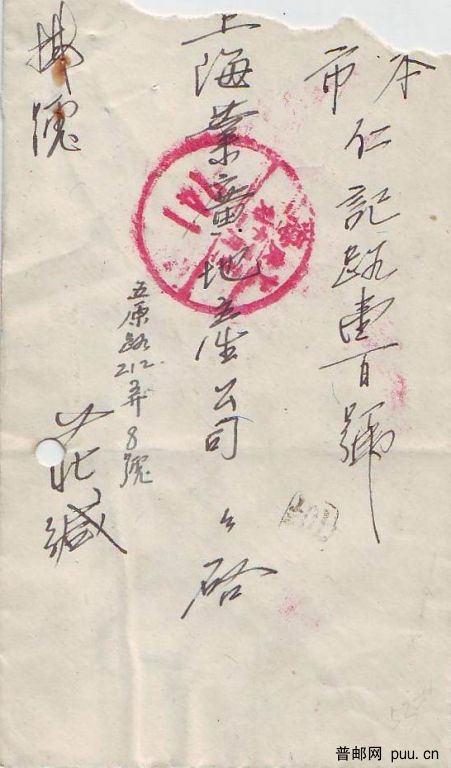 本市仁記路壹百號
上海業廣地产公司 公啓
掛號
五原路212弄8號
莊緘
普邮网 puu.cn